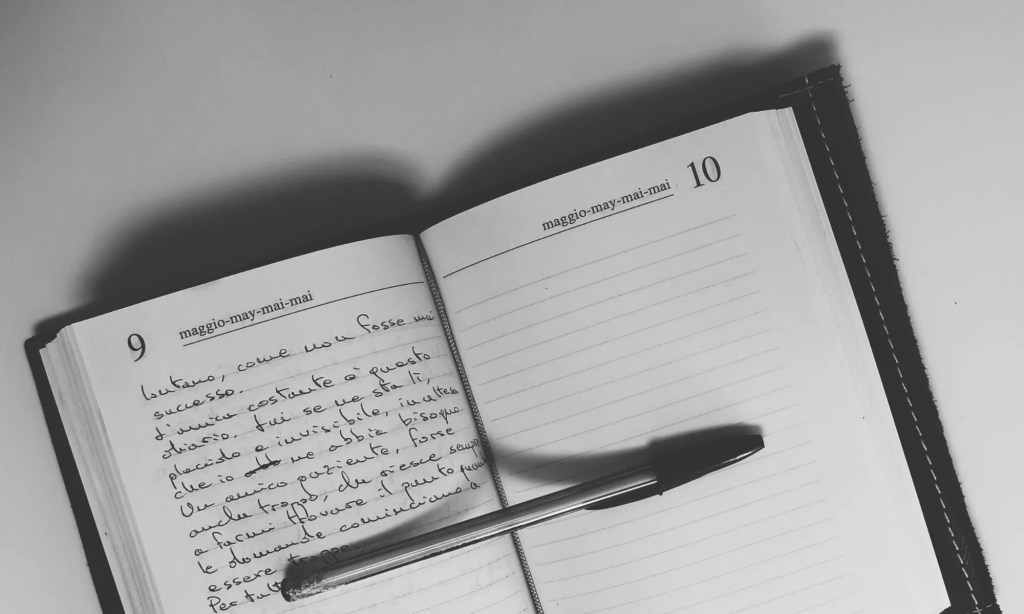 9 maggio-may-mai-mai
lontano, come non fosse mai
successo.
L'unica costante è questo
diario. Lui se ne sta lì,
placido e invisibile, in attesa
che io ne abbia bisogno.
Un amico paziente, forse
anche troppo, che riesce sempre
a farmi trovare il punto quando
le domande cominciano a
essere troppe.
Per
maggio-may-mai-mai 10